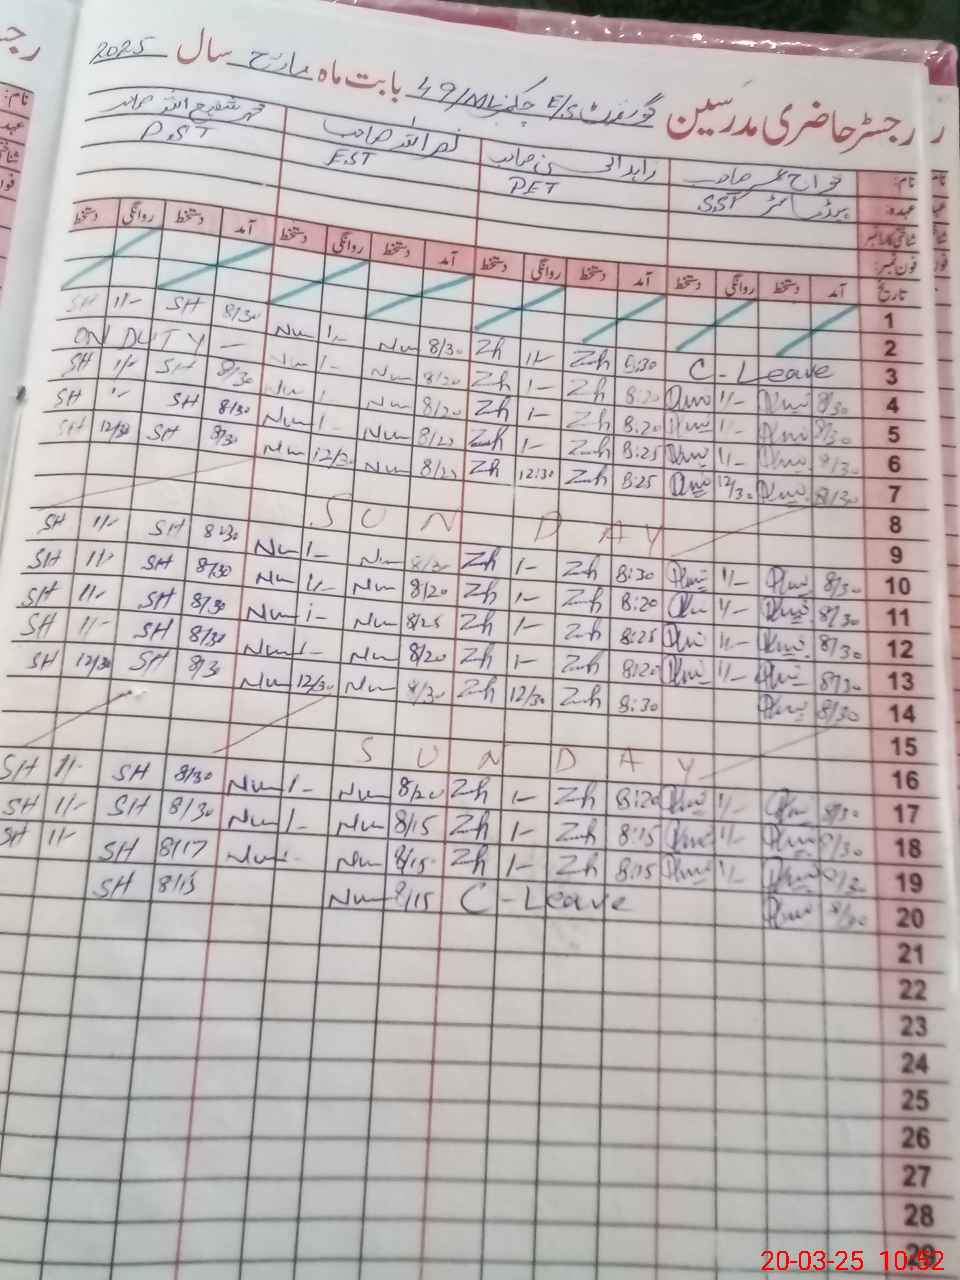 رجسٹر حاضری مدرسین گورنمنٹ E/S چک نمبر 49/ML بابت ماہ مارچ سال 2025
نام: زاہد الحسن صاحب نصر اللہ صاحب محمد شفیع اللہ صاحب
عہدہ: SST PET EST P.ST
شناختی کارڈ نمبر
فون نمبر:
تاریخ آمد دستخط روانگی دستخط آمد دستخط روانگی دستخط آمد دستخط روانگی دستخط آمد دستخط روانگی دستخط
1
2
SH 1/- SH 8/30 Num 1/- Num 8/30 Zh 1/- Zh 8:30 C - Leave 3
ON DUTY — Num 1- Num 8/20 Zh 1- Zh 8:20 1/- 8/30 4
SH 1/- SH 8/30 Num 1 Num 8/20 Zh 1- Zh 8:20 1- 8/30 5
SH 1- SH 8/30 Num 1- Num 8/20 Zh 1- Zh 8:25 1/- 8/30 6
SH 12/30 SH 8/30 Num 12/30 Num 8/25 Zh 12:30 Zh 8:25 12/30 8/30 7
8
SUNDAY 9
SH 1/- SH 8:30 Num 1- Num 8/30 Zh 1- Zh 8:30 1/- 8/30 10
SH 1/- SH 8/30 Num 1/- Num 8/20 Zh 1- Zh 8:20 1/- 8/30 11
SH 1/- SH 8/30 Num 1- Num 8/25 Zh 1- Zh 8:25 1/- 8/30 12
SH 1/- SH 8/30 Num 1- Num 8/20 Zh 1- Zh 8:20 1/- 8/30 13
SH 12/30 SH 8/30 Num 12/30 Num 8/30 Zh 12/30 Zh 8:30 8/30 14
15
SUNDAY 16
SH 1/- SH 8/30 Num 1- Num 8/20 Zh 1- Zh 8:20 1/- 8/30 17
SH 1/- SH 8/30 Num 1- Num 8/15 Zh 1- Zh 8:15 1/- 8/30 18
SH 1/- SH 8/17 Num 1- Num 8/15 Zh 1- Zh 8:15 1/- 19
SH 8/15 Num 8/15 C - Leave 20
21
22
23
24
25
26
27
28
29
20-03-25 10:52